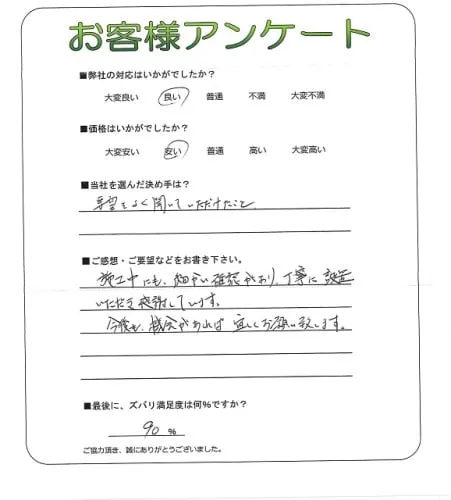 お客様アンケート
■弊社の対応はいかがでしたか？
大変良い 良い 普通 不満 大変不満
■価格はいかがでしたか？
大変安い 安い 普通 高い 大変高い
■当社を選んだ決め手は？
要望をよく聞いていただけたこと
■ご感想・ご要望などをお書き下さい。
施工中にも、細かい確認があり、丁寧に設置
いただき感謝しています。
今後も、機会があれば宜しくお願い致します。
■最後に、ズバリ満足度は何％ですか？
90 ％
ご協力頂き、誠にありがとうございました。